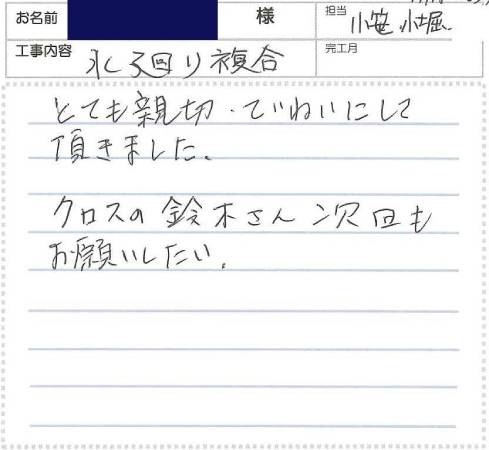 お名前 様 担当 小笹 小堀
工事内容 水廻り複合 完工月
とても親切・ていねいにして
頂きました。
クロスの鈴木さん次回も
お願いしたい。